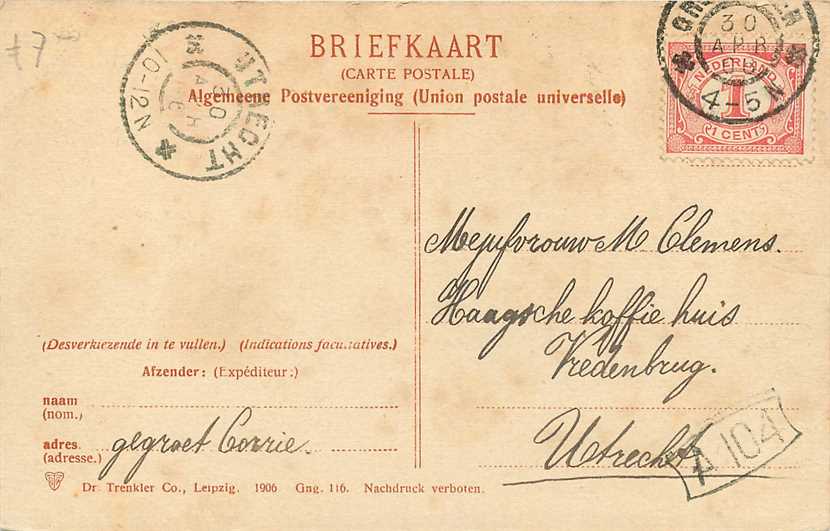 £7
BRIEFKAART
(CARTE POSTALE)
Algemeene Postvereeniging (Union postale universelle)
UTRECHT
30
10-12N
30
APR
4-5N
NEDERLAND
1
1 CENT
Mejufvrouw M Clemens.
Haagsche koffie huis
Vredenbrug.
Utrecht
A104
(Desverkiezende in te vullen.) (Indications facultatives.)
Afzender: (Expéditeur:)
naam
(nom.)
adres.
(adresse.)
gegroet Corrie.
Dr. Trenkler Co., Leipzig. 1906 Gng. 116. Nachdruck verboten.